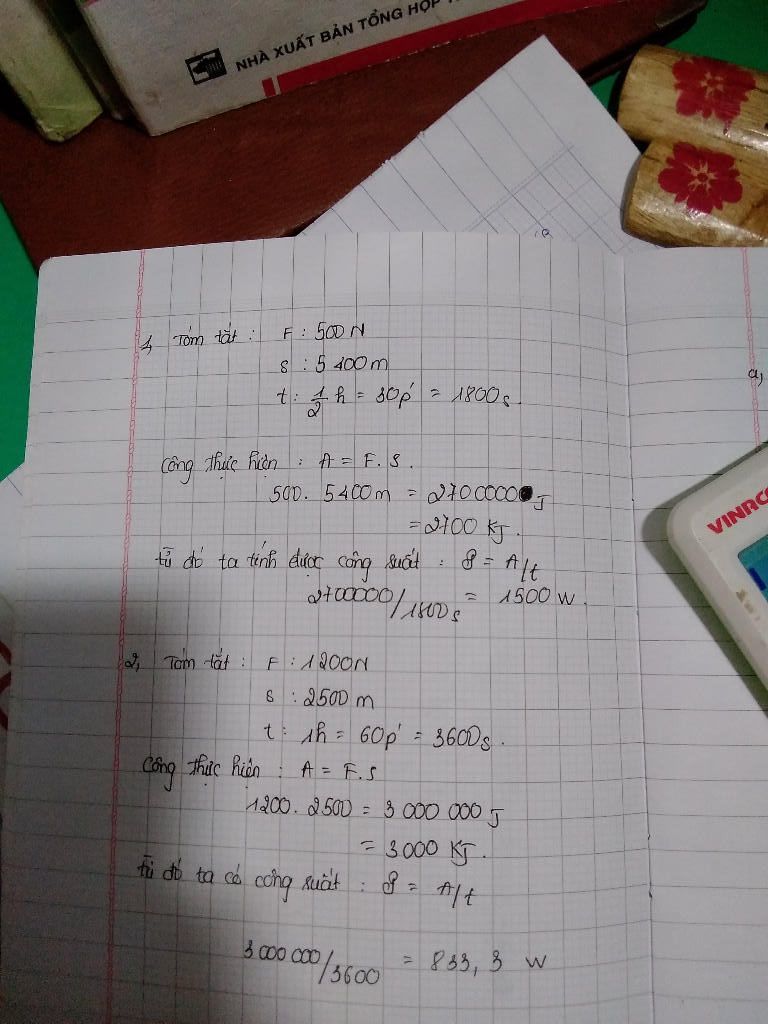 NHÀ XUẤT BẢN TỔNG HỢP
a,
VINAC
1, Tóm tắt : F : 500 N
s : 5 400 m
t : 1/2 h = 30p' = 1800s.
Công thực hiện : A = F. S.
500. 5400m = 2700000 J
= 2700 KJ.
từ đó ta tính được công suất : P = A/t
2700000/1800s = 1500 W.
2, Tóm tắt : F : 1200N
s : 2500 m
t : 1h = 60p' = 3600s.
Công thực hiện : A = F.S
1200. 2500 = 3 000 000 J
= 3000 KJ.
từ đó ta có công suất : P = A/t
3 000 000/3600 = 833,3 W